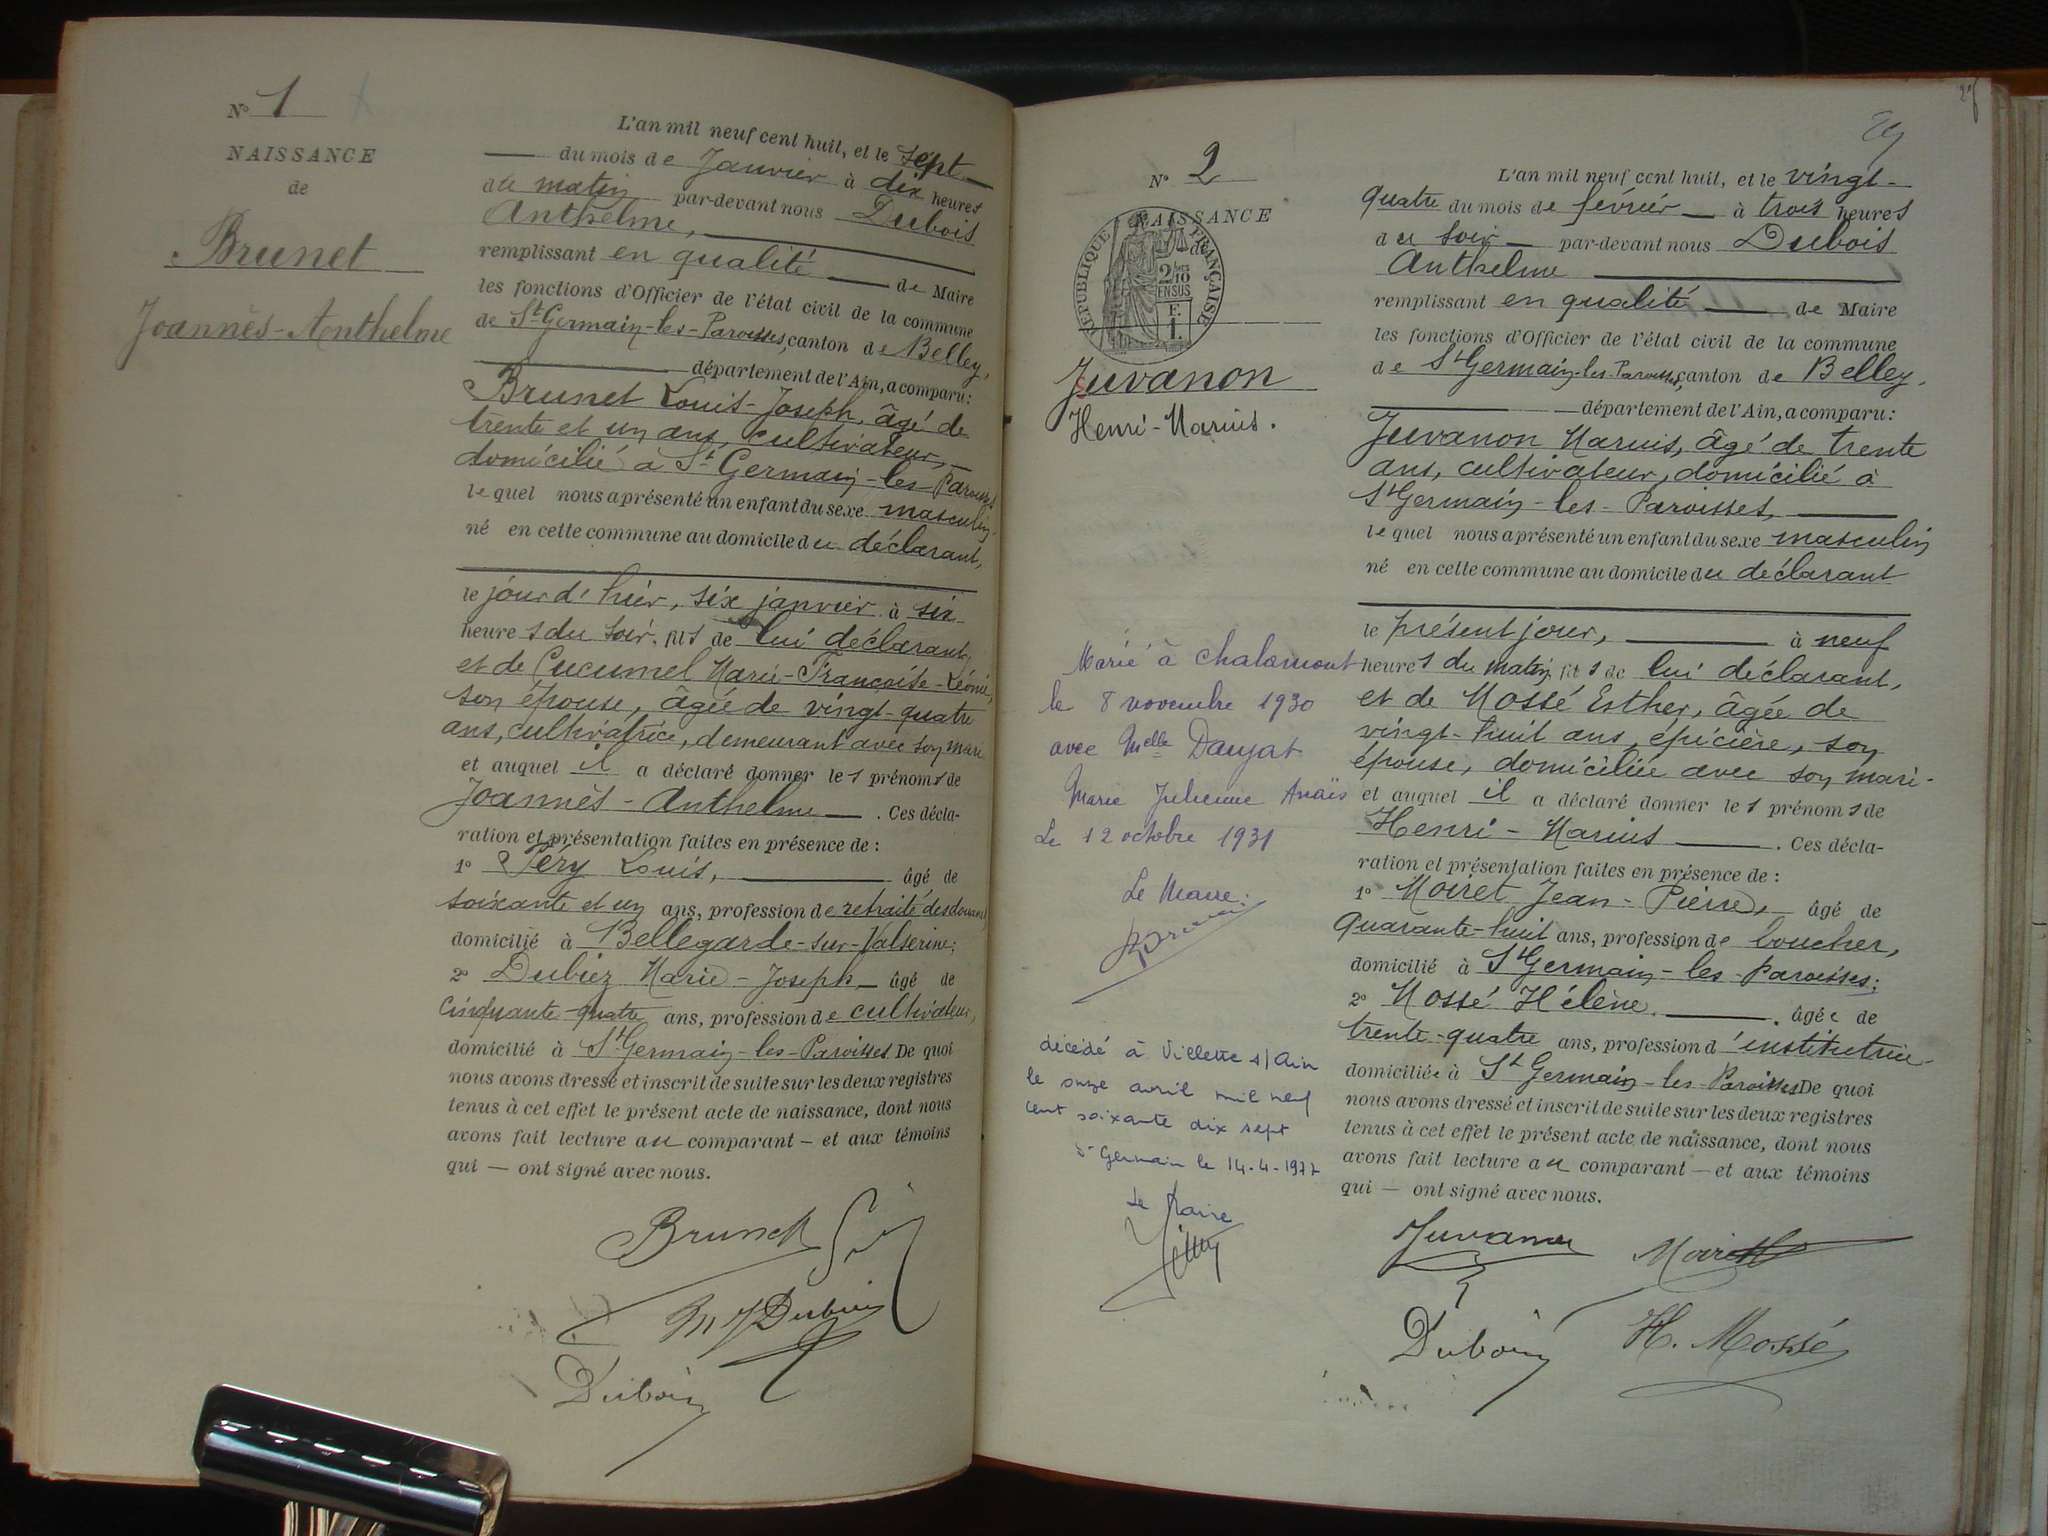 N° 1
NAISSANCE
de
Brunet
Joannès-Anthelme
L'an mil neuf cent huit, et le sept
du mois de Janvier à dix heures
du matin par-devant nous Dubois
Anthelme,
remplissant en qualité de Maire
les fonctions d'Officier de l'état civil de la commune
de St Germain-les-Paroisses, canton de Belley,
département de l'Ain, a comparu:
Brunet Louis-Joseph, âgé de
trente et un ans, cultivateur,
domicilié à St Germain-les-Paroisses
lequel nous a présenté un enfant du sexe masculin,
né en cette commune au domicile du déclarant,
le jour d'hier, six janvier à six
heures du soir. fils de lui déclarant,
et de Cucumel Marie-Françoise-Léonie,
son épouse, âgée de vingt-quatre
ans, cultivatrice, demeurant avec son mari
et auquel il a déclaré donner les prénoms de
Joannès-Anthelme. Ces décla-
ration et présentation faites en présence de :
1° Péry Louis, âgé de
soixante et un ans, profession de retraité des douanes,
domicilié à Bellegarde-sur-Valserine;
2° Dubiez Marie-Joseph, âgé de
cinquante-quatre ans, profession de cultivateur,
domicilié à St Germain-les-Paroisses De quoi
nous avons dressé et inscrit de suite sur les deux registres
tenus à cet effet le présent acte de naissance, dont nous
avons fait lecture au comparant — et aux témoins
qui — ont signé avec nous.
Brunet
Dubois
N° 2
NAISSANCE
de
RÉPUBLIQUE FRANÇAISE
2/10
EN SUS
Juvanon
Henri-Marius.
Marié à Chalamont
le 8 novembre 1930
avec Melle Daujat
Marie Julienne Anaïs
Le 12 octobre 1931
Le Maire:
décédé à Villette s/Ain
le onze avril mil neuf
cent soixante dix sept
St Germain le 14-4-1977
Le Maire
29
L'an mil neuf cent huit, et le vingt-
quatre du mois de février à trois heures
du soir par-devant nous Dubois
Anthelme
remplissant en qualité de Maire
les fonctions d'Officier de l'état civil de la commune
de St Germain-les-Paroisses, canton de Belley,
département de l'Ain, a comparu:
Juvanon Marius, âgé de trente
ans, cultivateur, domicilié à
St Germain-les-Paroisses,
lequel nous a présenté un enfant du sexe masculin
né en cette commune au domicile du déclarant
le présent jour, à neuf
heures du matin fils de lui déclarant,
et de Mossé Esther, âgée de
vingt-huit ans, épicière, son
épouse, domiciliée avec son mari-
et auquel il a déclaré donner les prénoms de
Henri-Marius. Ces décla-
ration et présentation faites en présence de :
1° Moiret Jean-Pierre, âgé de
quarante-huit ans, profession de boucher,
domicilié à St Germain-les-Paroisses;
2° Mossé Hélène, âgée de
trente-quatre ans, profession d'institutrice
domiciliée à St Germain-les-Paroisses De quoi
nous avons dressé et inscrit de suite sur les deux registres
tenus à cet effet le présent acte de naissance, dont nous
avons fait lecture au comparant — et aux témoins
qui — ont signé avec nous.
Juvanon Moiret
Dubois H. Mossé